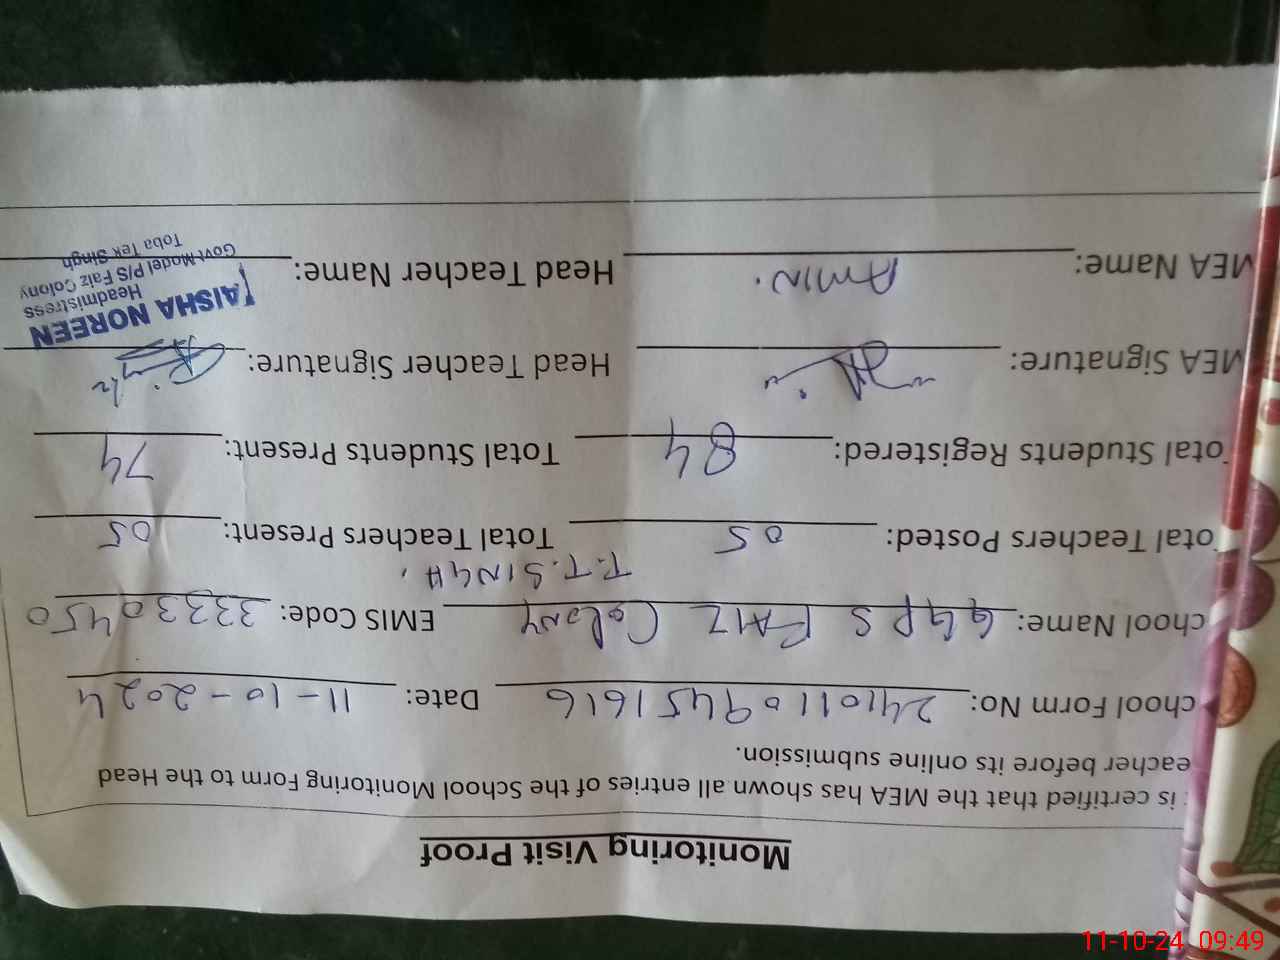 Monitoring Visit Proof
t is certified that the MEA has shown all entries of the School Monitoring Form to the Head
eacher before its online submission.
chool Form No: 24101109451616 Date: 11-10-2024
chool Name: GGPS FAIZ Colony EMIS Code: 33330450
T.T.SINGH.
otal Teachers Posted: 05 Total Teachers Present: 05
otal Students Registered: 84 Total Students Present: 74
MEA Signature: Head Teacher Signature:
MEA Name: AMIN. Head Teacher Name:
AISHA NOREEN
Headmistress
Govt Model P/S Faiz Colony
Toba Tek Singh
11-10-24 09:49